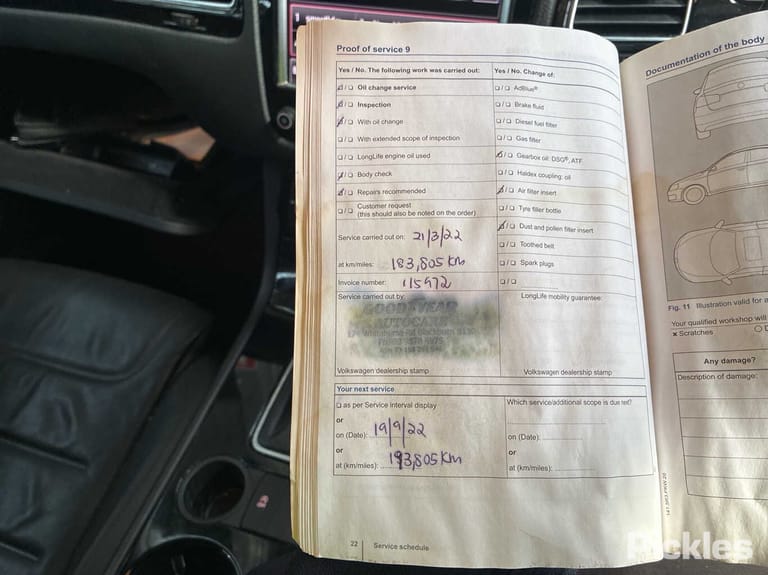 Proof of service 9
Yes / No. The following work was carried out:
☑/☐ Oil change service
☑/☐ Inspection
☑/☐ With oil change
☐/☐ With extended scope of inspection
☐/☐ LongLife engine oil used
☑/☐ Body check
☑/☐ Repairs recommended
☐/☐ Customer request
(this should also be noted on the order)
Service carried out on: 21/3/22
at km/miles: 183,805 KM
Invoice number: 115972
Service carried out by:
GOODYEAR
AUTOCARE
Volkswagen dealership stamp
Yes / No. Change of:
☐/☐ AdBlue®
☐/☐ Brake fluid
☐/☐ Diesel fuel filter
☐/☐ Gas filter
☑/☐ Gearbox oil: DSG®, ATF
☐/☐ Haldex coupling: oil
☑/☐ Air filter insert
☐/☐ Tyre filler bottle
☑/☐ Dust and pollen filter insert
☐/☐ Toothed belt
☐/☐ Spark plugs
☐/☐
LongLife mobility guarantee:
Volkswagen dealership stamp
Your next service
☐ as per Service interval display
or
on (Date): 19/9/22
or
at (km/miles): 193,805 KM
Which service/additional scope is due next?
on (Date):
or
at (km/miles):
22 Service schedule
Documentation of the body
Fig. 11 Illustration valid for a
Your qualified workshop will
x Scratches
Any damage?
Description of damage:
Pickles